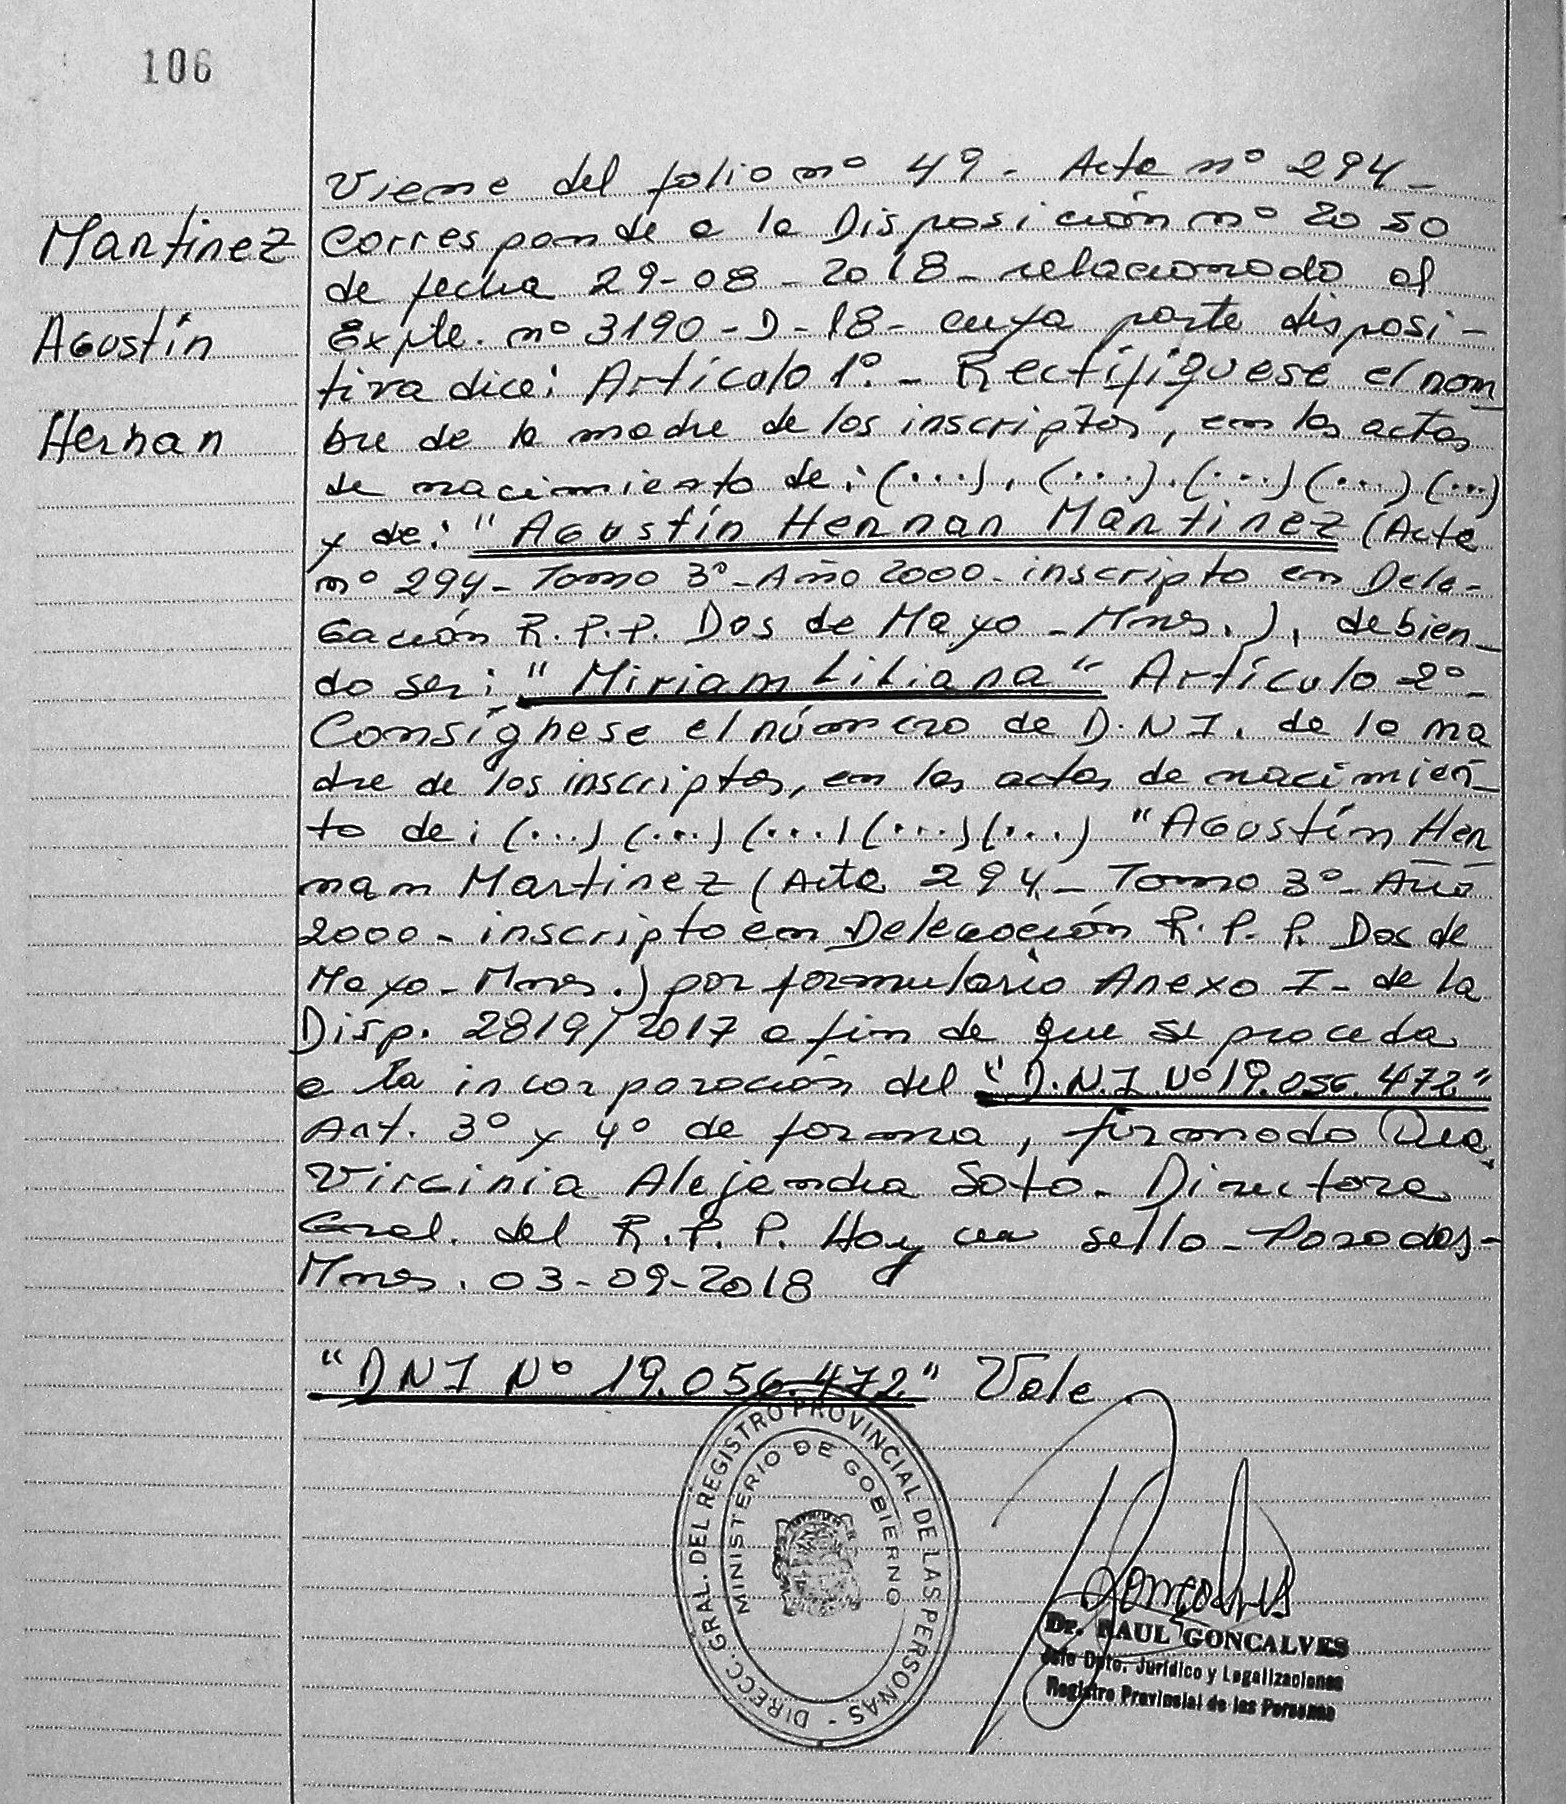 106
Martinez
Agustín
Hernan
Viene del folio nº 49 - Acta nº 294 -
Corresponde a la Disposición nº 2050
de fecha 29-08-2018 - relacionado al
Expte. nº 3190-D-18- cuya parte disposi-
tiva dice: Artículo 1º.- Rectifíquese el nom
bre de la madre de los inscriptos, en las actas
de nacimiento de: (...), (...), (...) (...) (...)
y de: "Agustín Hernan Martinez (Acta
nº 294 - Tomo 3º - Año 2000 - inscripto en Dele-
gación R.P.P. Dos de Mayo - Mnes.), debien-
do ser: "Miriam Liliana" Artículo 2º-
Consígnese el número de D.N.I. de la ma
dre de los inscriptos, en las actas de nacimien-
to de: (...) (...) (...) (...) (...) "Agustín Her
nan Martinez (Acta 294 - Tomo 3º - Año
2000 - inscripto en Delegación R.P.P. Dos de
Mayo - Mnes.) por formulario Anexo I - de la
Disp. 2819/2017 a fin de que se proceda
a la incorporación del "D.N.I. Nº 19.056.472"
Art. 3º y 4º de forma, firmado Dra.
Virginia Alejandra Soto - Directora
Gral. del R.P.P. Hay un sello - Posadas -
Mnes. 03-09-2018
"DNI Nº 19.056.472" Vale.
DIRECC. GRAL. DEL REGISTRO PROVINCIAL DE LAS PERSONAS -
MINISTERIO DE GOBIERNO
Goncalves
Dr. RAUL GONCALVES
Jefe Dpto. Jurídico y Legalizaciones
Registro Provincial de las Personas